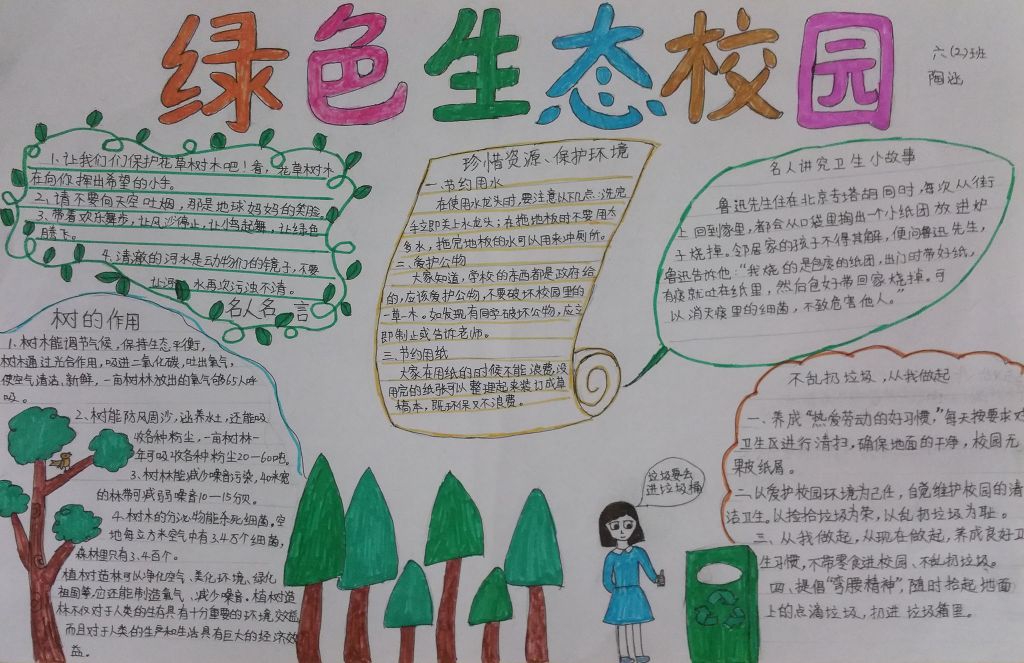 绿色生态校园
六(2)班
陶涵
1、让我们们保护花草树木吧！看，花草树木
在向你挥出希望的小手。
2、请不要向天空吐烟，那是地球妈妈的笑脸。
3、带着欢乐舞步，让风沙停止，让小鸟起舞，让绿色
腾飞。
4、清澈的河水是动物们的镜子，不要
让河 水再次污浊不清。
名人名 言
珍惜资源、保护环境
一、节约用水
在使用水龙头时，要注意以下几点：洗完
手立即关上水龙头；在拖地板时不要用太
多水，拖完地板的水可以用来冲厕所。
二、爱护公物
大家知道，学校的东西都是政府给
的，应该爱护公物，不要破坏校园里的
一草一木。如发现有同学破坏公物，应立
即制止或告诉老师。
三、节约用纸
大家在用纸的时候不能浪费，没
用完的纸张可以整理起来装订成草
稿本，既环保又不浪费。
名人讲究卫生小故事
鲁迅先生住在北京专塔胡同时，每次从街
上回到家里，都会从口袋里掏出一个小纸团放进炉
子烧掉。邻居家的孩子不得其解，便问鲁迅先生，
鲁迅告诉他：“我烧的是包痰的纸团，出门时带好纸，
有痰就吐在纸里，然后包好带回家烧掉。可
以消灭痰里的细菌，不致危害他人。”
树的作用
1、树木能调节气候，保持生态平衡，
树木通过光合作用，吸进二氧化碳，吐出氧气，
使空气清洁、新鲜，一亩树林放出的氧气够65人呼
吸。
2、树能防风固沙，涵养水土，还能吸
收各种粉尘，一亩树林一
年可吸收各种粉尘20—60吨。
3、树林能减少噪音污染，40米宽
的林带可减弱噪音10—15分贝。
4、树木的分泌物能杀死细菌。空
地每立方米空气中有3.4万个细菌，
森林里只有3.4百个。
植树对造林可以净化空气、美化环境、绿化
祖国等，应还能制造氧气、减少噪音。植树造
林不仅对于人类的生存具有十分重要的环境效益，
而且对于人类的生产和生活具有巨大的经济效
益。
垃圾要丢
进垃圾桶
不乱扔垃圾，从我做起
一、养成“热爱劳动的好习惯，”每天按要求对
卫生区进行清扫，确保地面的干净，校园无
果皮纸屑。
二、以爱护校园环境为己任，自觉维护校园的清
洁卫生。以捡拾垃圾为荣，以乱扔垃圾为耻。
三、从我做起，从现在做起，养成良好卫
生习惯，不带零食进校园、不乱扔垃圾。
四、提倡“弯腰精神”，随时拾起地面
上的点滴垃圾，扔进垃圾箱里。